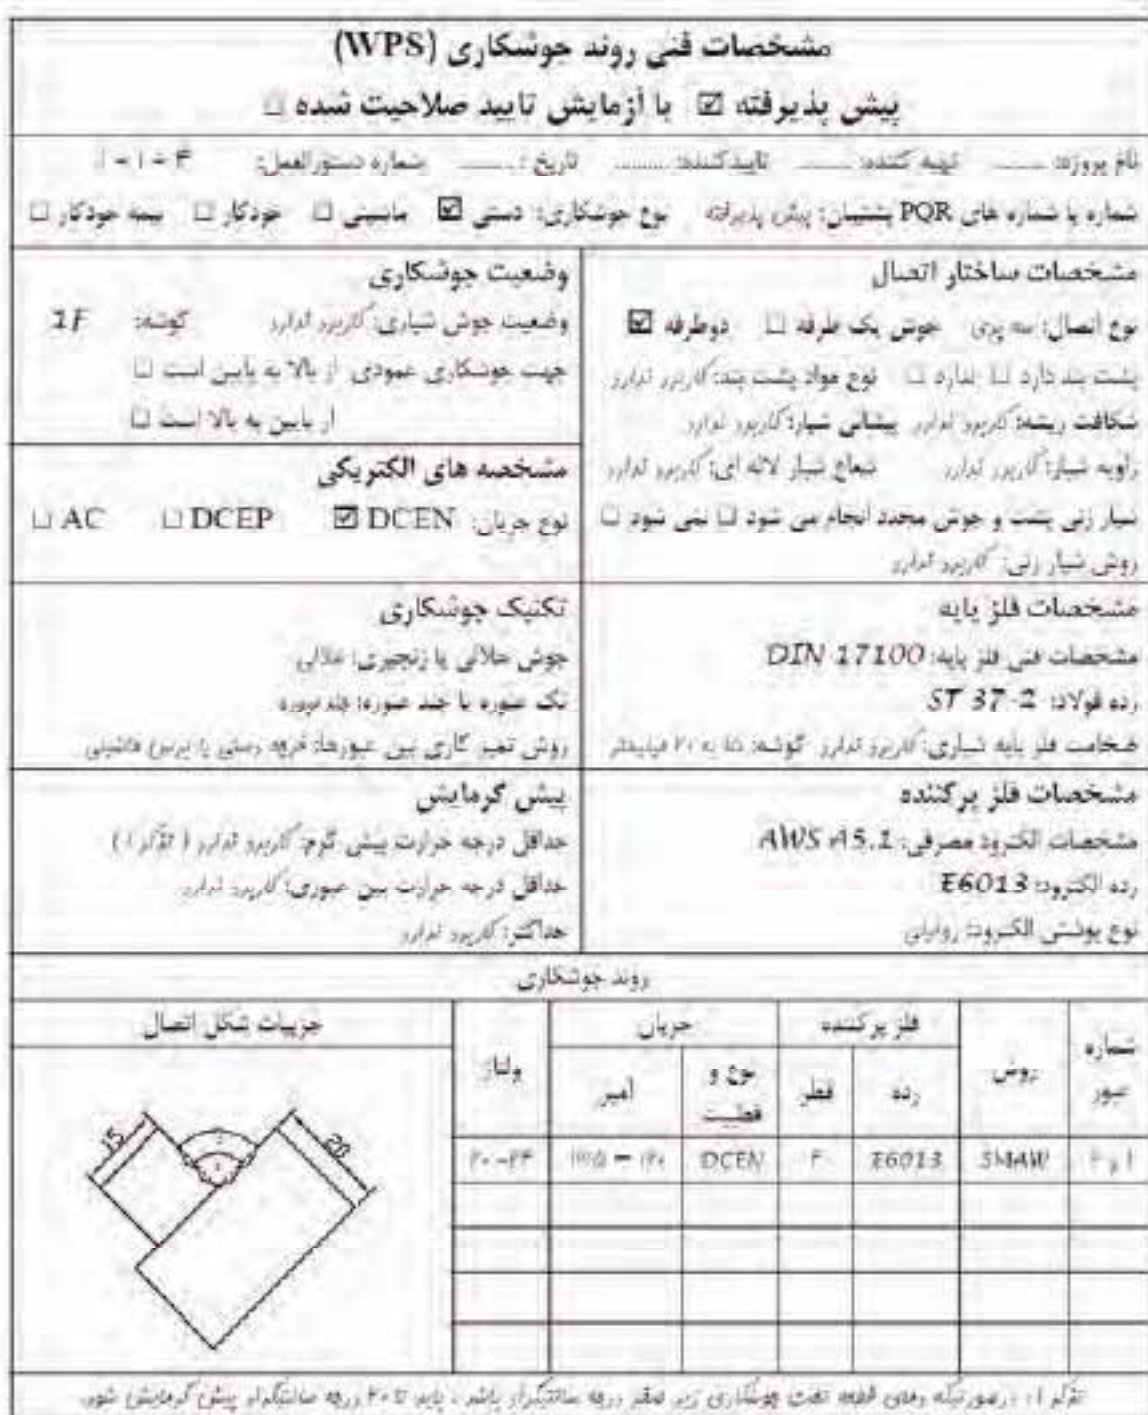 مشخصات فنی روند جوشکاری (WPS)
پیش پذیرفته ☑ با آزمایش تایید صلاحیت شده □
نام پروژه: ......... تهیه کننده: ......... تاییدکننده: ......... تاریخ : ......... شماره دستورالعمل:
شماره یا شماره های PQR پشتیبان: پیش پذیرفته نوع جوشکاری: دستی ☑ ماشینی □ خودکار □ نیمه خودکار □
مشخصات ساختار اتصال
نوع اتصال: سه پری جوش یک طرفه □ دوطرفه ☑
پشت بند دارد □ ندارد □ نوع مواد پشت بند: کاربرد ندارد
شکافت ریشه: کاربرد ندارد پیشانی شیار: کاربرد ندارد
زاویه شیار: کاربرد ندارد شعاع شیار لاله ای: کاربرد ندارد
شیار زنی پشت و جوش مجدد انجام می شود □ نمی شود □
روش شیار زنی: کاربرد ندارد
وضعیت جوشکاری
وضعیت جوش شیاری: کاربرد ندارد گوشه:
جهت جوشکاری عمودی از بالا به پایین است □
از پایین به بالا است □
مشخصه های الکتریکی
نوع جریان: ☑ DCEN □ DCEP □ AC
مشخصات فلز پایه
مشخصات فنی فلز پایه: DIN 17100
رده فولاد: ST 37-2
ضخامت فلز پایه شیاری: کاربرد ندارد گوشه: ۱۵ به ۲۰ میلیمتر
تکنیک جوشکاری
جوش حلالی یا زنجیری:
تک عبوره یا چند عبوره: چند عبوره
روش تمیز کاری بین عبورها: فرچه دستی یا برس ماشینی
مشخصات فلز پرکننده
مشخصات الکترود مصرفی: AWS A5.1
رده الکترود: E6013
نوع پوشش الکترود: روتیلی
پیش گرمایش
حداقل درجه حرارت پیش گرم: کاربرد ندارد ( تذکر ۱ )
حداقل درجه حرارت بین عبوری: کاربرد ندارد
حداکثر: کاربرد ندارد
روند جوشکاری
شماره عبور روش فلز پرکننده جریان ولتاژ جزییات شکل اتصال
رده قطر نوع و قطبیت آمپر
۱ و ۲ SMAW E6013 ۴ DCEN ۲۰-۲۴
15 20
1 2
تذکر ۱: درصورتیکه دمای قطعه تحت جوشکاری زیر صفر درجه سانتیگراد باشد ، باید تا ۲۰ درجه سانتیگراد پیش گرمایش شود.